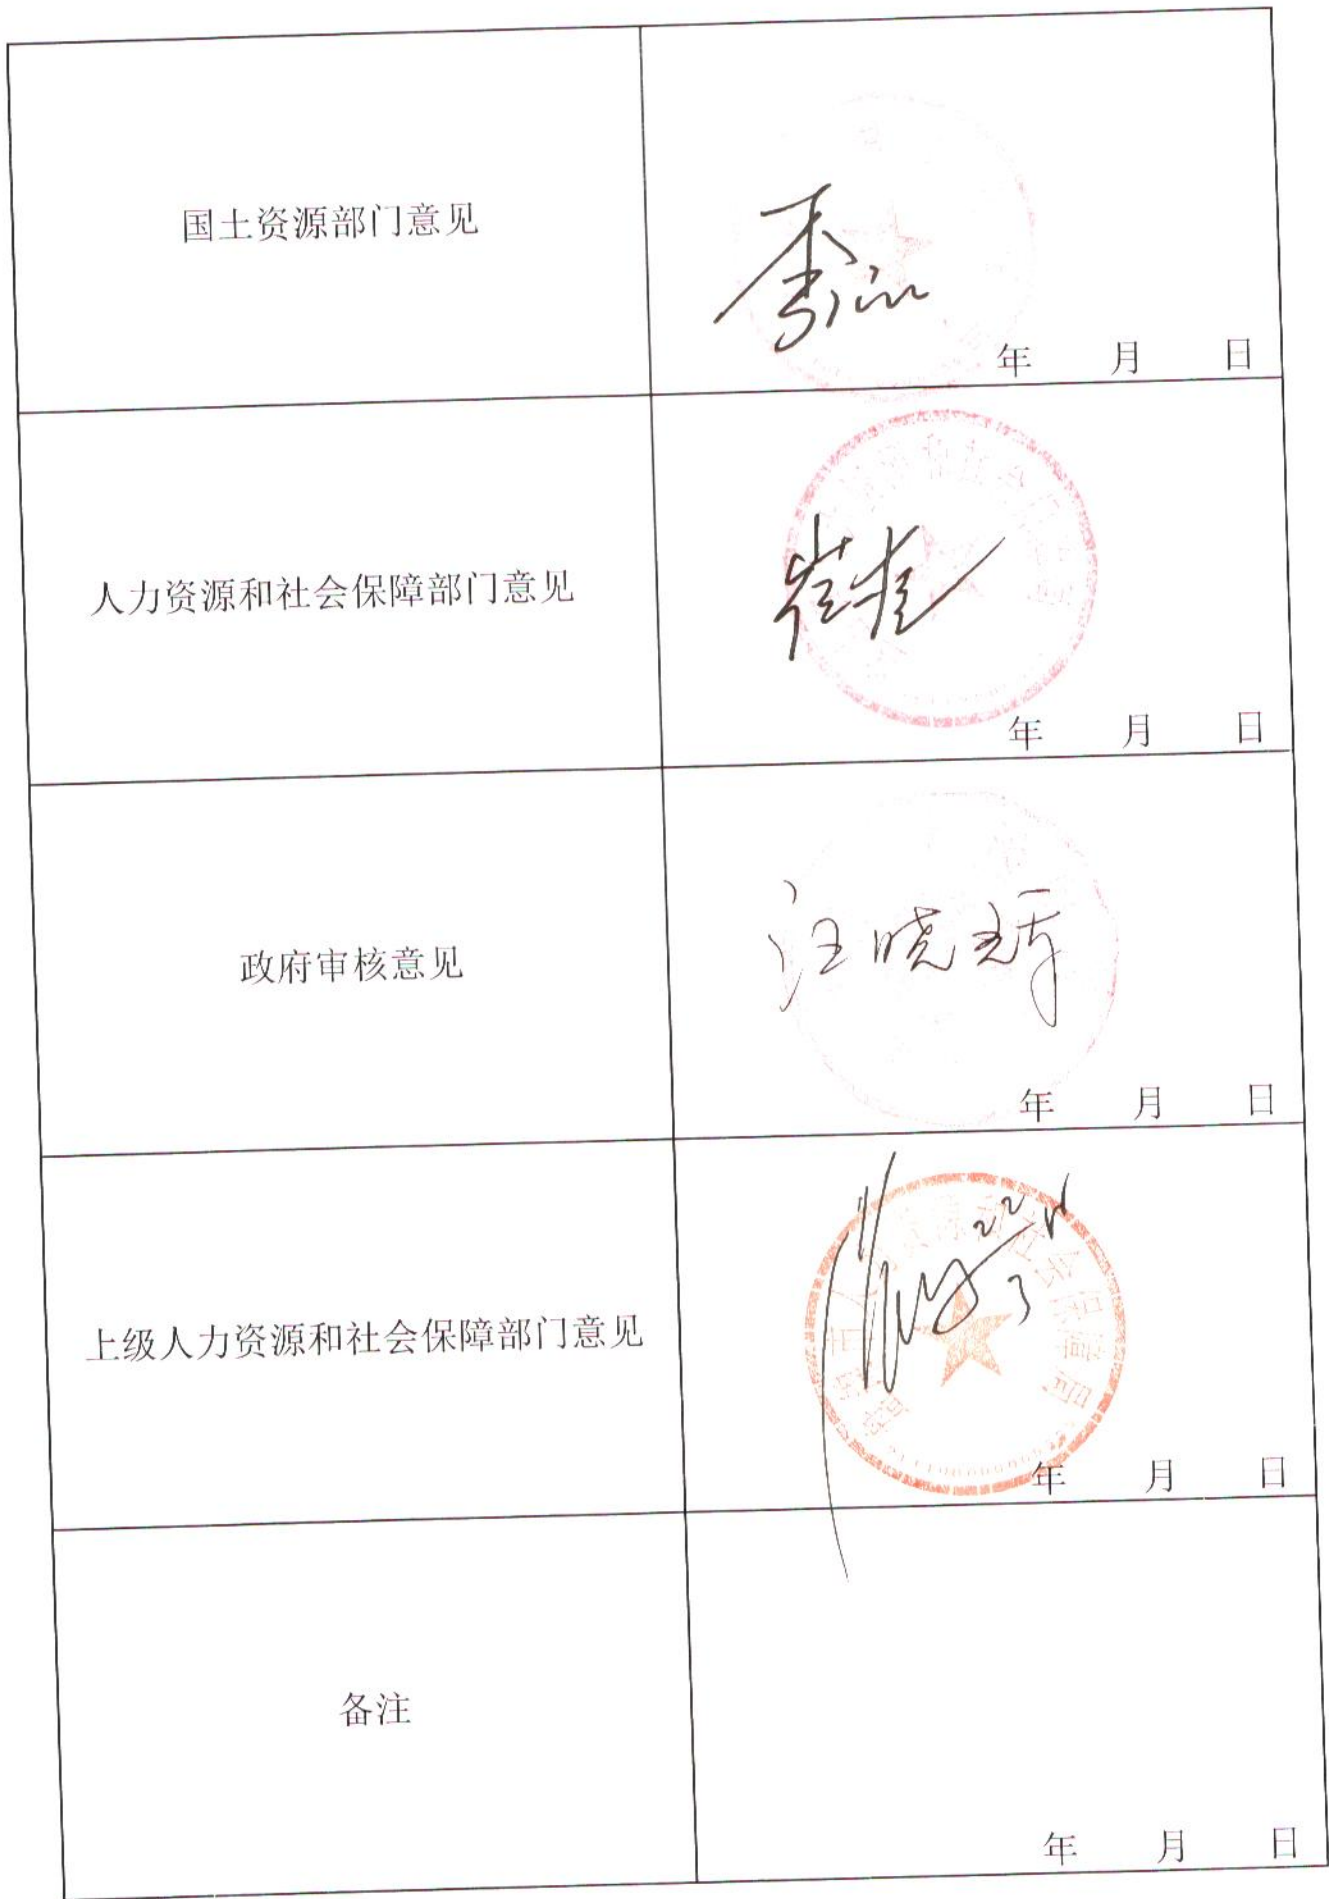 国土资源部门意见
年 月 日
人力资源和社会保障部门意见
年 月 日
政府审核意见
汪晓
年 月 日
上级人力资源和社会保障部门意见
人力资源和社会保障局
年 月 日
备注
年 月 日